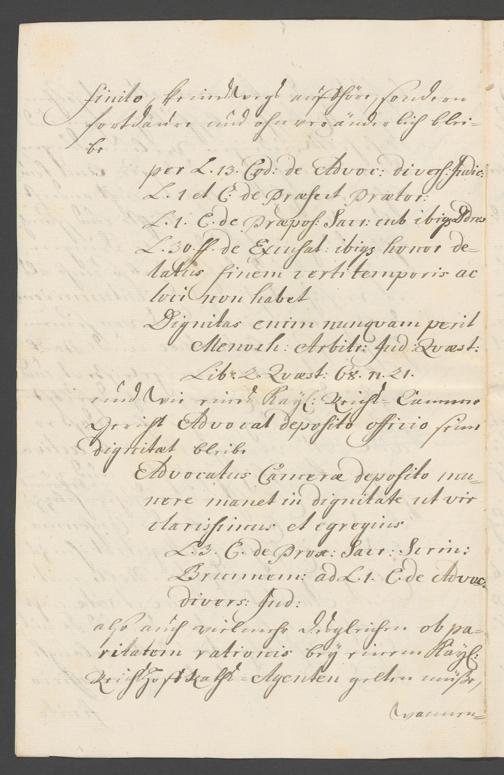 finito, keineswegs aufhöre, sondern
fortdaure und ohnveränderlich blei-
be
per L. 13. Cod: de Advoc: divers: Judic:
L. 1 et C: de Præfect Prætor:
L. 1. C. de Præpos: Sacr: cub ibiqs
L. 30 ff. de Excusat: ibiqs honor de-
latus finem certi temporis ac
loci non habet
Dignitas enim nunquam perit
Menoch: Arbitr: Jud: Quæst:
Lib: 2. Quæst: 68. n. 21.
und wie eines Kayl: Reichs-Cammer
Gericht Advocat deposito officio seine
dignitæt bleibe
Advocatus Cameræ deposito mu-
nere manet in dignitate ut vir
clarissimus et egregius
L. 3. C. de Prox: Sacr: Scrin:
Brunnem: ad L. 1. C. de Advoc:
divers: Jud:
also auch vielmehr desgleichen ob pa-
ritatem rationis bey einem Kayl:
Reichshofraths-Agenten gelten müsse,